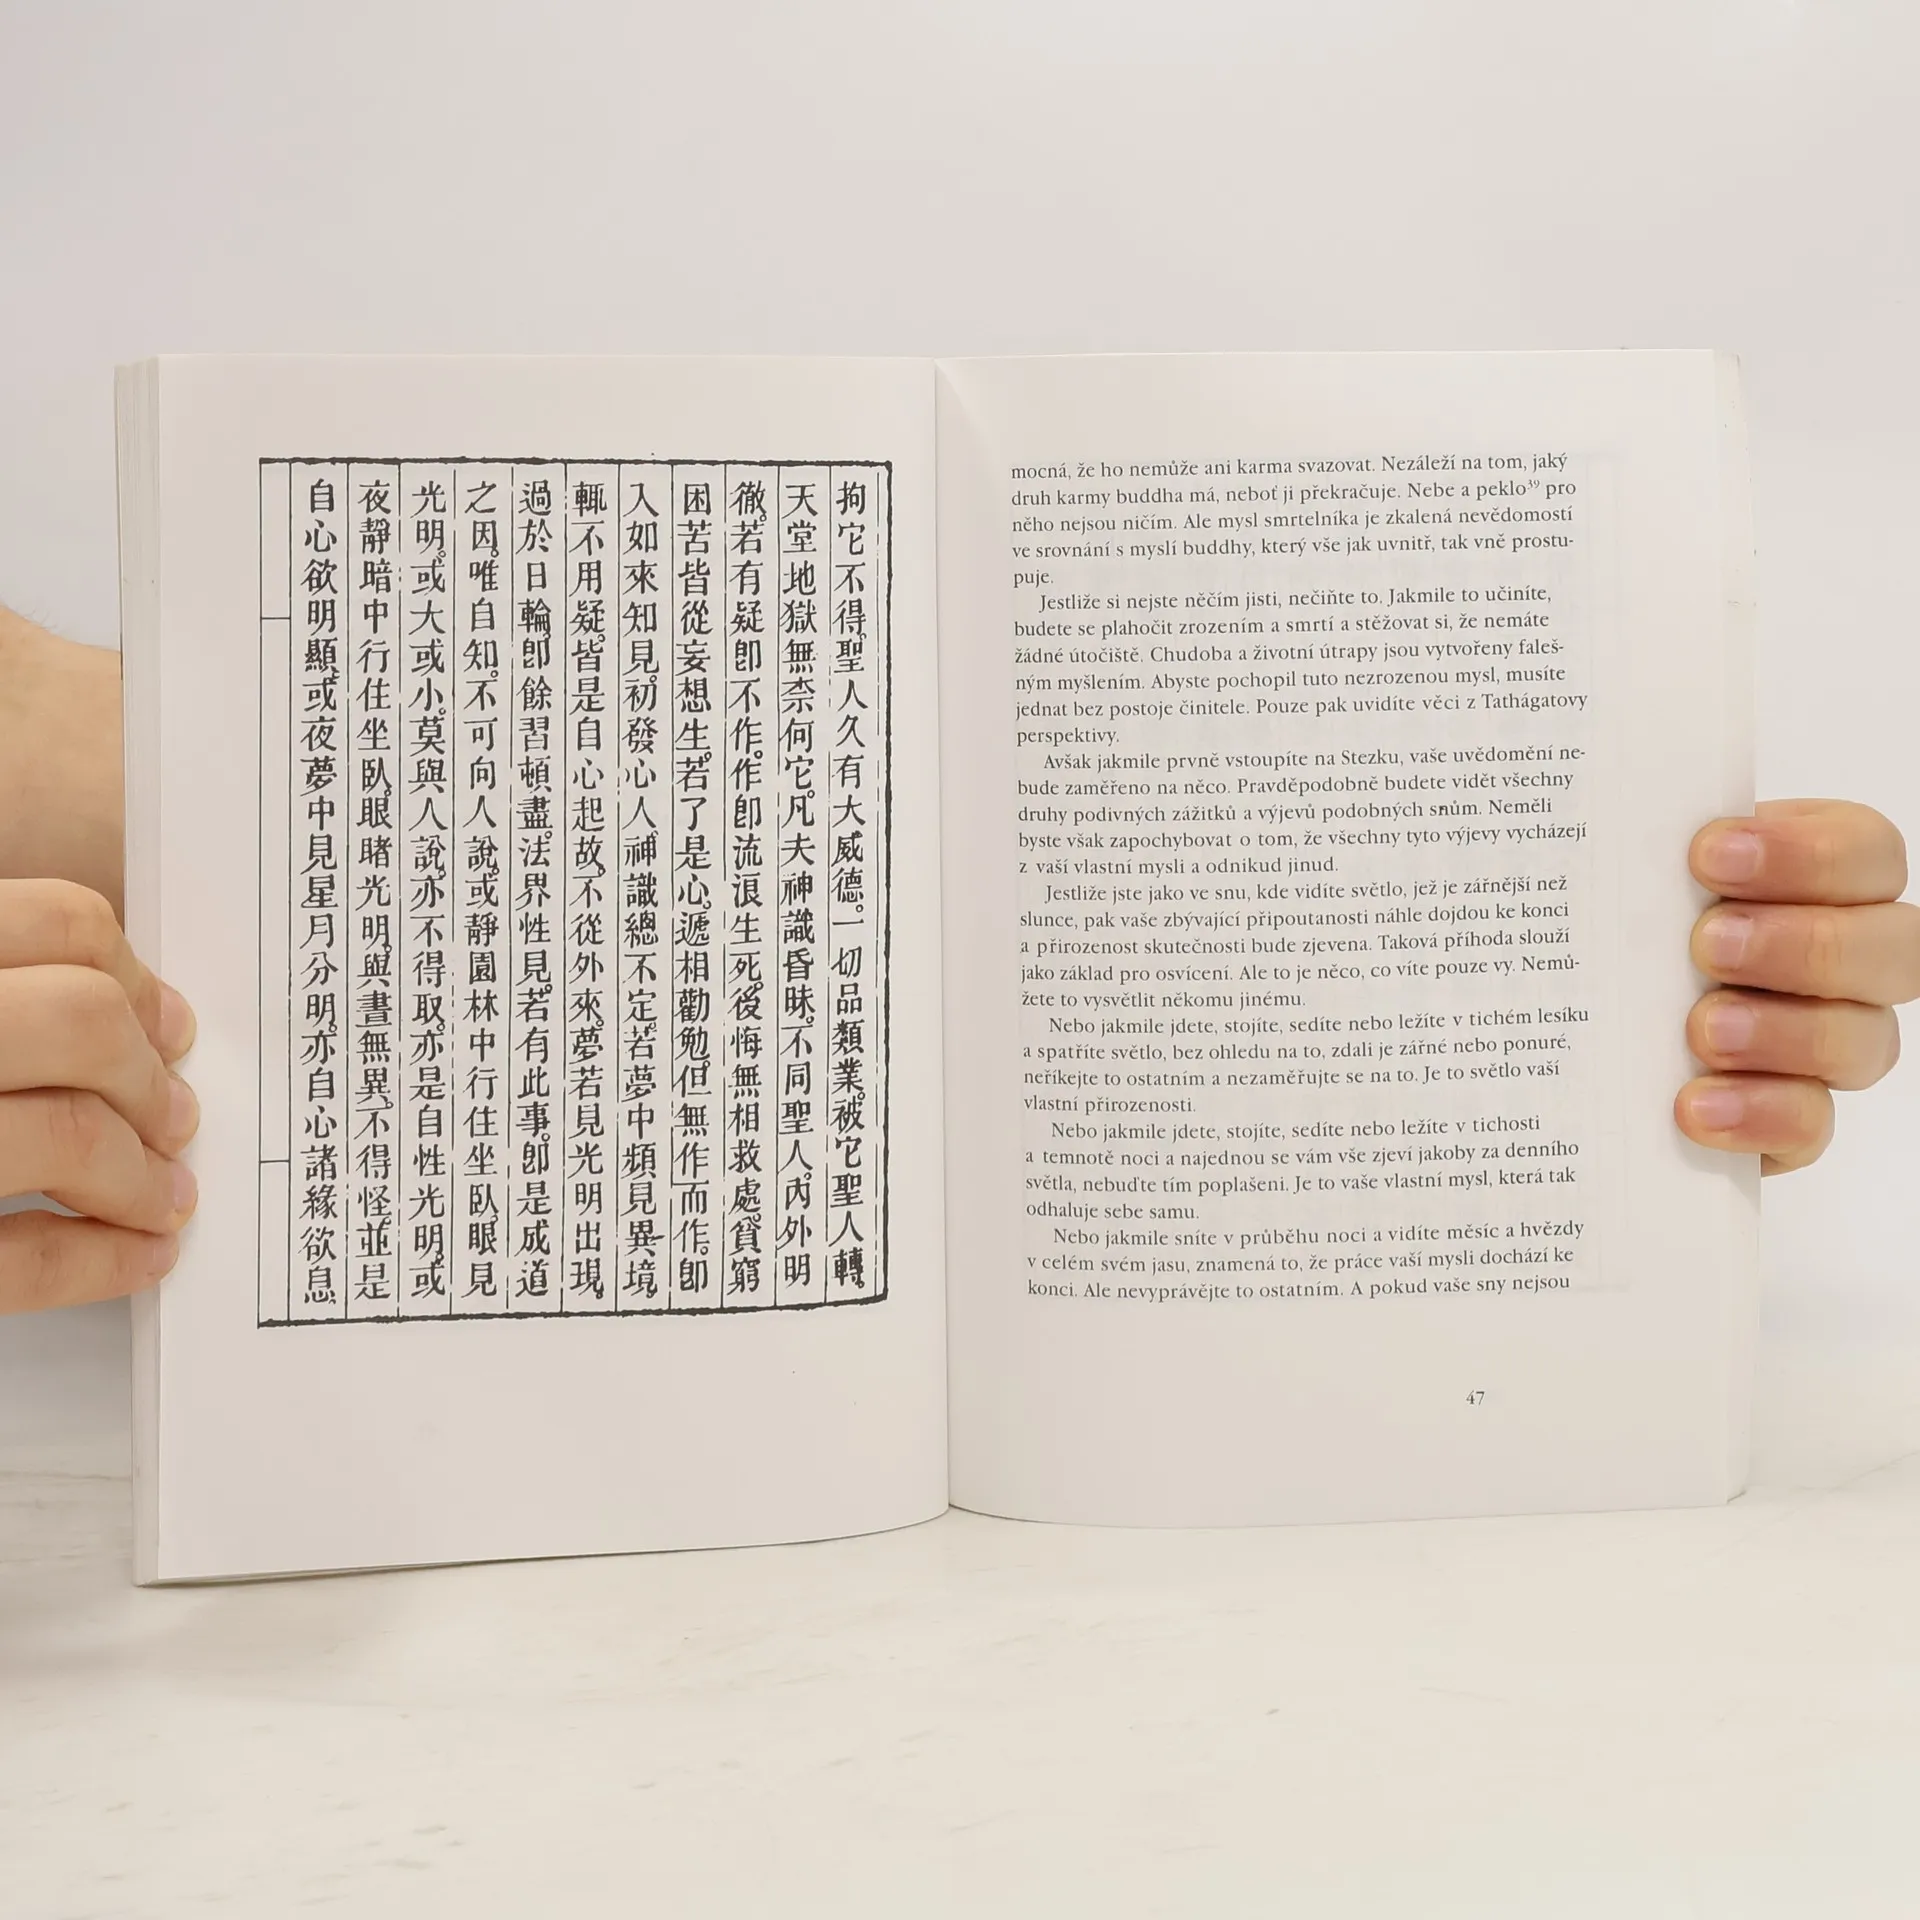 拘它不得。聖人久有大威德。一切品類業。被它聖人轉。
天堂地獄無柰何它。凡夫神識昏昧。不同聖人。內外明
徹。若有疑卽不作。作卽流浪生死。後悔無相救處。貧窮
困苦皆從妄想生。若了是心。遞相勸勉。但無作而作。卽
入如來知見。初發心人。神識總不定。若夢中頻見異境。
輒不用疑。皆是自心起故。不從外來。夢若見光明出現。
過於日輪。卽餘習頓盡。法界性見。若有此事。卽是成道
之因。唯自知。不可向人說。或靜園林中行住坐臥。眼見
光明。或大或小。莫與人說。亦不得取。亦是自性光明。或
夜靜暗中行住坐臥。眼睹光明。與晝無異。不得怪。並是
自心欲明顯。或夜夢中見星月分明。亦自心諸緣欲息。
mocná, že ho nemůže ani karma svazovat. Nezáleží na tom, jaký
druh karmy buddha má, neboť ji překračuje. Nebe a peklo³⁹ pro
něho nejsou ničím. Ale mysl smrtelníka je zkalená nevědomostí
ve srovnání s myslí buddhy, který vše jak uvnitř, tak vně prostu-
puje.
Jestliže si nejste něčím jisti, nečiňte to. Jakmile to učiníte,
budete se plahočit zrozením a smrtí a stěžovat si, že nemáte
žádné útočiště. Chudoba a životní útrapy jsou vytvořeny faleš-
ným myšlením. Abyste pochopil tuto nezrozenou mysl, musíte
jednat bez postoje činitele. Pouze pak uvidíte věci z Tathágatovy
perspektivy.
Avšak jakmile prvně vstoupíte na Stezku, vaše uvědomění ne-
bude zaměřeno na něco. Pravděpodobně budete vidět všechny
druhy podivných zážitků a výjevů podobných snům. Neměli
byste však zapochybovat o tom, že všechny tyto výjevy vycházejí
z vaší vlastní mysli a odnikud jinud.
Jestliže jste jako ve snu, kde vidíte světlo, jež je zářnější než
slunce, pak vaše zbývající připoutanosti náhle dojdou ke konci
a přirozenost skutečnosti bude zjevena. Taková příhoda slouží
jako základ pro osvícení. Ale to je něco, co víte pouze vy. Nemů-
žete to vysvětlit někomu jinému.
Nebo jakmile jdete, stojíte, sedíte nebo ležíte v tichém lesíku
a spatříte světlo, bez ohledu na to, zdali je zářné nebo ponuré,
neříkejte to ostatním a nezaměřujte se na to. Je to světlo vaší
vlastní přirozenosti.
Nebo jakmile jdete, stojíte, sedíte nebo ležíte v tichosti
a temnotě noci a najednou se vám vše zjeví jakoby za denního
světla, nebuďte tím poplašeni. Je to vaše vlastní mysl, která tak
odhaluje sebe samu.
Nebo jakmile sníte v průběhu noci a vidíte měsíc a hvězdy
v celém svém jasu, znamená to, že práce vaší mysli dochází ke
konci. Ale nevyprávějte to ostatním. A pokud vaše sny nejsou
47